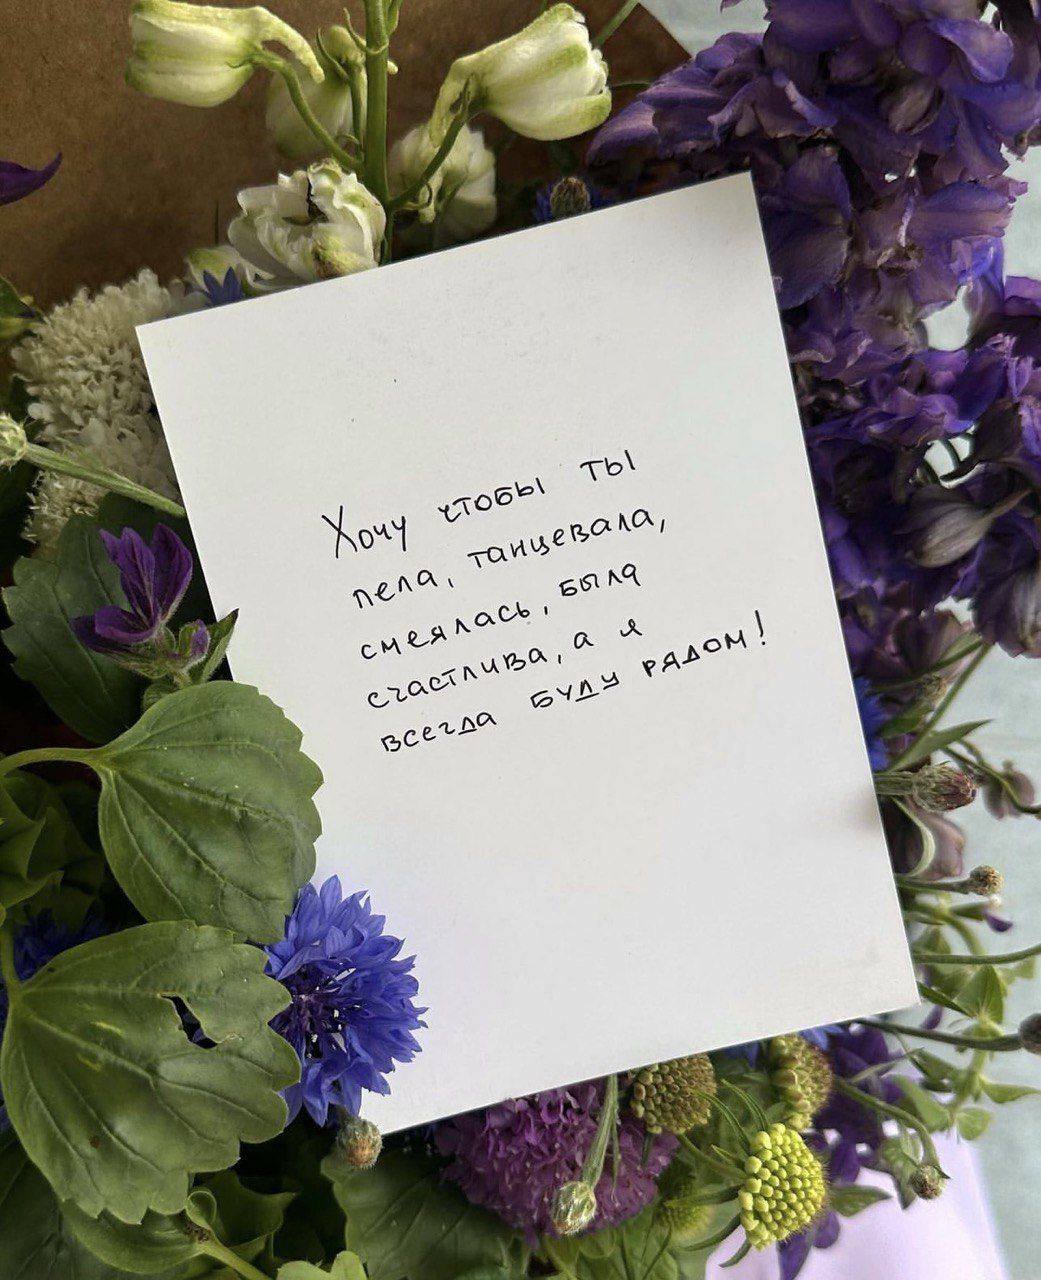 Хочу чтобы ты
пела, танцевала,
смеялась, была
счастлива, а я
всегда буду рядом!